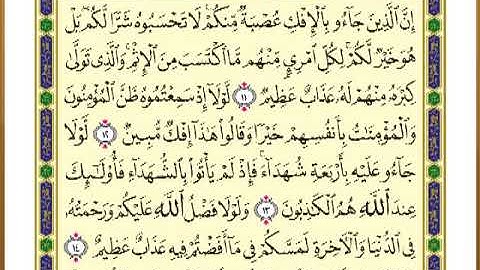 إِنَّ ٱلَّذِينَ جَآءُو بِٱلْإِفْكِ عُصْبَةٌ مِّنكُمْ ۚ لَا تَحْسَبُوهُ شَرًّا لَّكُم ۖ بَلْ
هُوَ خَيْرٌ لَّكُمْ ۚ لِكُلِّ ٱمْرِئٍ مِّنْهُم مَّا ٱكْتَسَبَ مِنَ ٱلْإِثْمِ ۚ وَٱلَّذِى تَوَلَّىٰ
كِبْرَهُۥ مِنْهُمْ لَهُۥ عَذَابٌ عَظِيمٌ ١١ لَّوْلَآ إِذْ سَمِعْتُمُوهُ ظَنَّ ٱلْمُؤْمِنُونَ
وَٱلْمُؤْمِنَٰتُ بِأَنفُسِهِمْ خَيْرًا وَقَالُوا۟ هَٰذَآ إِفْكٌ مُّبِينٌ ١٢ لَّوْلَا
جَآءُو عَلَيْهِ بِأَرْبَعَةِ شُهَدَآءَ ۚ فَإِذْ لَمْ يَأْتُوا۟ بِٱلشُّهَدَآءِ فَأُو۟لَٰٓئِكَ
عِندَ ٱللَّهِ هُمُ ٱلْكَٰذِبُونَ ١٣ وَلَوْلَا فَضْلُ ٱللَّهِ عَلَيْكُمْ وَرَحْمَتُهُۥ
فِى ٱلدُّنْيَا وَٱلْءَاخِرَةِ لَمَسَّكُمْ فِى مَآ أَفَضْتُمْ فِيهِ عَذَابٌ عَظِيمٌ ١٤